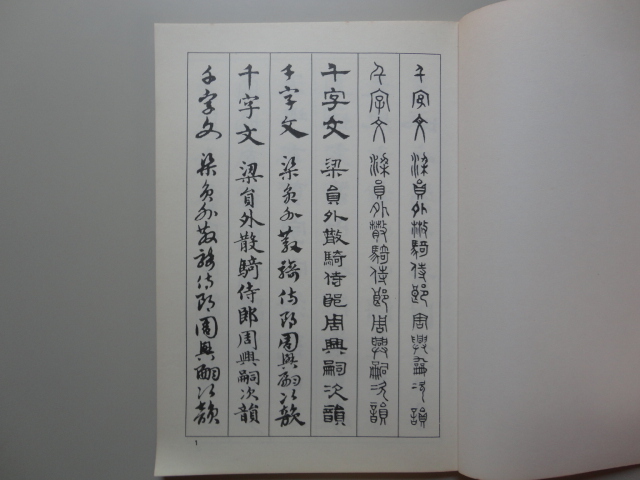 千字文 梁員外散騎侍郎周興嗣次韻
千字文 梁員外散騎侍郎周興嗣次韻
千字文 梁員外散騎侍郎周興嗣次韻
千字文 梁員外散騎侍郎周興嗣次韻
千字文 梁員外散騎侍郎周興嗣次韻
千字文 梁員外散騎侍郎周興嗣次韻
1